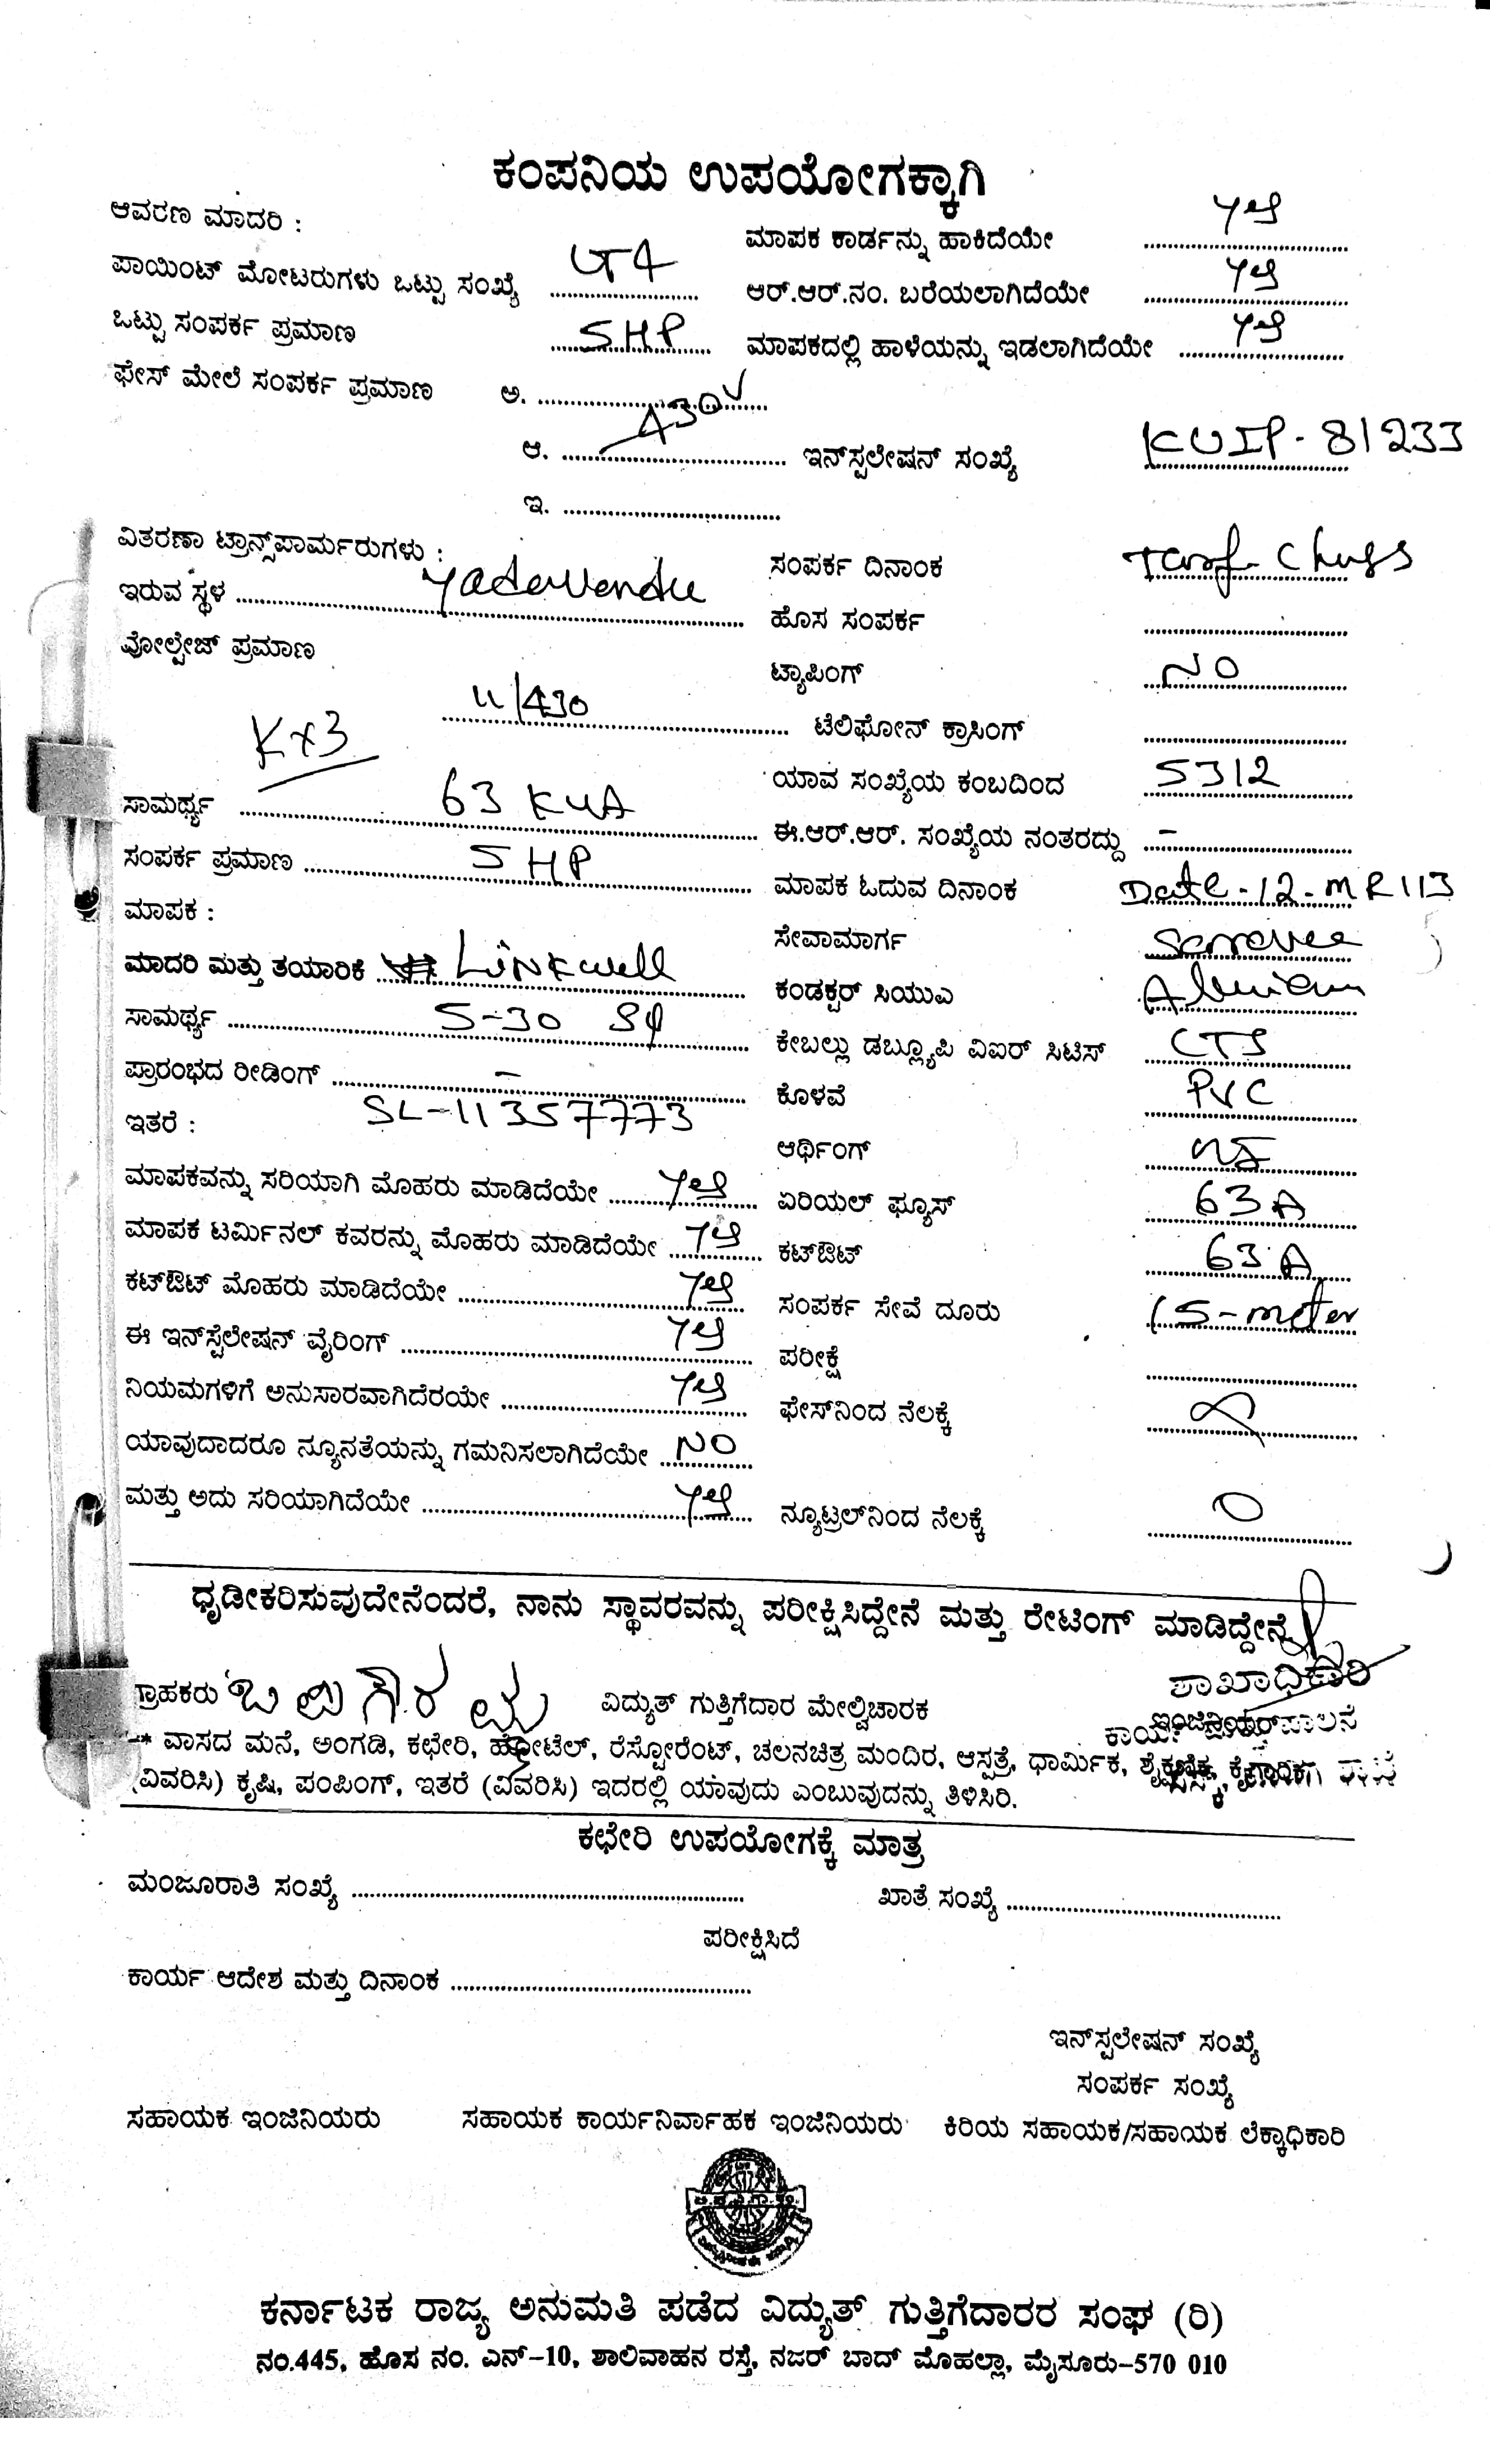 ಕಂಪನಿಯ ಉಪಯೋಗಕ್ಕಾಗಿ
ಆವರಣ ಮಾದರಿ :
ಮಾಪಕ ಕಾರ್ಡನ್ನು ಹಾಕಿದೆಯೇ yes
ಪಾಯಿಂಟ್ ಮೋಟರುಗಳು ಒಟ್ಟು ಸಂಖ್ಯೆ
ಆರ್.ಆರ್.ನಂ. ಬರೆಯಲಾಗಿದೆಯೇ yes
ಒಟ್ಟು ಸಂಪರ್ಕ ಪ್ರಮಾಣ 5HP
ಮಾಪಕದಲ್ಲಿ ಹಾಳೆಯನ್ನು ಇಡಲಾಗಿದೆಯೇ yes
ಫೇಸ್ ಮೇಲೆ ಸಂಪರ್ಕ ಪ್ರಮಾಣ ಅ. 430V
ಆ. ಇನ್‌ಸ್ಟಲೇಷನ್ ಸಂಖ್ಯೆ KUIP-81233
ಇ.
ವಿತರಣಾ ಟ್ರಾನ್ಸ್‌ಪಾರ್ಮರುಗಳು :
ಸಂಪರ್ಕ ದಿನಾಂಕ
ಇರುವ ಸ್ಥಳ
ಹೊಸ ಸಂಪರ್ಕ
ವೋಲ್ಟೇಜ್ ಪ್ರಮಾಣ 11/430
ಟ್ಯಾಪಿಂಗ್ NO
Kx3
ಟೆಲಿಫೋನ್ ಕ್ರಾಸಿಂಗ್
ಯಾವ ಸಂಖ್ಯೆಯ ಕಂಬದಿಂದ 5312
ಸಾಮರ್ಥ್ಯ 63 KVA
ಈ.ಆರ್.ಆರ್. ಸಂಖ್ಯೆಯ ನಂತರದ್ದು -
ಸಂಪರ್ಕ ಪ್ರಮಾಣ 5HP
ಮಾಪಕ ಓದುವ ದಿನಾಂಕ Date-12-MR113
ಮಾಪಕ :
ಸೇವಾಮಾರ್ಗ
ಮಾದರಿ ಮತ್ತು ತಯಾರಿಕೆ Linkwell
ಕಂಡಕ್ಟರ್ ಸಿಯುಎ
ಸಾಮರ್ಥ್ಯ 5-30
ಕೇಬಲ್ಲು ಡಬ್ಲ್ಯೂಪಿ ವಿಐರ್ ಸಿಟಿಸ್ CTS
ಪ್ರಾರಂಭದ ರೀಡಿಂಗ್ -
ಕೊಳವೆ PVC
ಇತರೆ : SL-11357773
ಆರ್ಥಿಂಗ್
ಮಾಪಕವನ್ನು ಸರಿಯಾಗಿ ಮೊಹರು ಮಾಡಿದೆಯೇ yes
ಏರಿಯಲ್ ಫ್ಯೂಸ್ 63A
ಮಾಪಕ ಟರ್ಮಿನಲ್ ಕವರನ್ನು ಮೊಹರು ಮಾಡಿದೆಯೇ yes
ಕಟ್‌ಔಟ್ 63A
ಕಟ್‌ಔಟ್ ಮೊಹರು ಮಾಡಿದೆಯೇ yes
ಸಂಪರ್ಕ ಸೇವೆ ದೂರು 15-meter
ಈ ಇನ್‌ಸ್ಟೆಲೇಷನ್ ವೈರಿಂಗ್ yes
ಪರೀಕ್ಷೆ
ನಿಯಮಗಳಿಗೆ ಅನುಸಾರವಾಗಿದೆರಯೇ yes
ಫೇಸ್‌ನಿಂದ ನೆಲಕ್ಕೆ
ಯಾವುದಾದರೂ ನ್ಯೂನತೆಯನ್ನು ಗಮನಿಸಲಾಗಿದೆಯೇ NO
ಮತ್ತು ಅದು ಸರಿಯಾಗಿದೆಯೇ yes
ನ್ಯೂಟ್ರಲ್‌ನಿಂದ ನೆಲಕ್ಕೆ 0
ಧೃಡೀಕರಿಸುವುದೇನೆಂದರೆ, ನಾನು ಸ್ಥಾವರವನ್ನು ಪರೀಕ್ಷಿಸಿದ್ದೇನೆ ಮತ್ತು ರೇಟಿಂಗ್ ಮಾಡಿದ್ದೇನೆ
ಶಾಖಾಧಿಕಾರಿ
ಗ್ರಾಹಕರು ವಿದ್ಯುತ್ ಗುತ್ತಿಗೆದಾರ ಮೇಲ್ವಿಚಾರಕ
** ವಾಸದ ಮನೆ, ಅಂಗಡಿ, ಕಛೇರಿ, ಹೋಟೆಲ್, ರೆಸ್ಟೋರೆಂಟ್, ಚಲನಚಿತ್ರ ಮಂದಿರ, ಆಸ್ಪತ್ರೆ, ಧಾರ್ಮಿಕ, ಶೈಕ್ಷಣಿಕ, ಕೈಗಾರಿಕಾ
(ವಿವರಿಸಿ) ಕೃಷಿ, ಪಂಪಿಂಗ್, ಇತರೆ (ವಿವರಿಸಿ) ಇದರಲ್ಲಿ ಯಾವುದು ಎಂಬುವುದನ್ನು ತಿಳಿಸಿರಿ.
ಕಛೇರಿ ಉಪಯೋಗಕ್ಕೆ ಮಾತ್ರ
ಮಂಜೂರಾತಿ ಸಂಖ್ಯೆ ಖಾತೆ ಸಂಖ್ಯೆ
ಪರೀಕ್ಷಿಸಿದೆ
ಕಾರ್ಯ ಆದೇಶ ಮತ್ತು ದಿನಾಂಕ
ಇನ್‌ಸ್ಟಲೇಷನ್ ಸಂಖ್ಯೆ
ಸಂಪರ್ಕ ಸಂಖ್ಯೆ
ಸಹಾಯಕ ಇಂಜಿನಿಯರು ಸಹಾಯಕ ಕಾರ್ಯನಿರ್ವಾಹಕ ಇಂಜಿನಿಯರು ಕಿರಿಯ ಸಹಾಯಕ/ಸಹಾಯಕ ಲೆಕ್ಕಾಧಿಕಾರಿ
ಕರ್ನಾಟಕ ರಾಜ್ಯ ಅನುಮತಿ ಪಡೆದ ವಿದ್ಯುತ್ ಗುತ್ತಿಗೆದಾರರ ಸಂಘ (ರಿ)
ನಂ.445, ಹೊಸ ನಂ. ಎನ್-10, ಶಾಲಿವಾಹನ ರಸ್ತೆ, ನಜರ್ ಬಾದ್ ಮೊಹಲ್ಲಾ, ಮೈಸೂರು-570 010